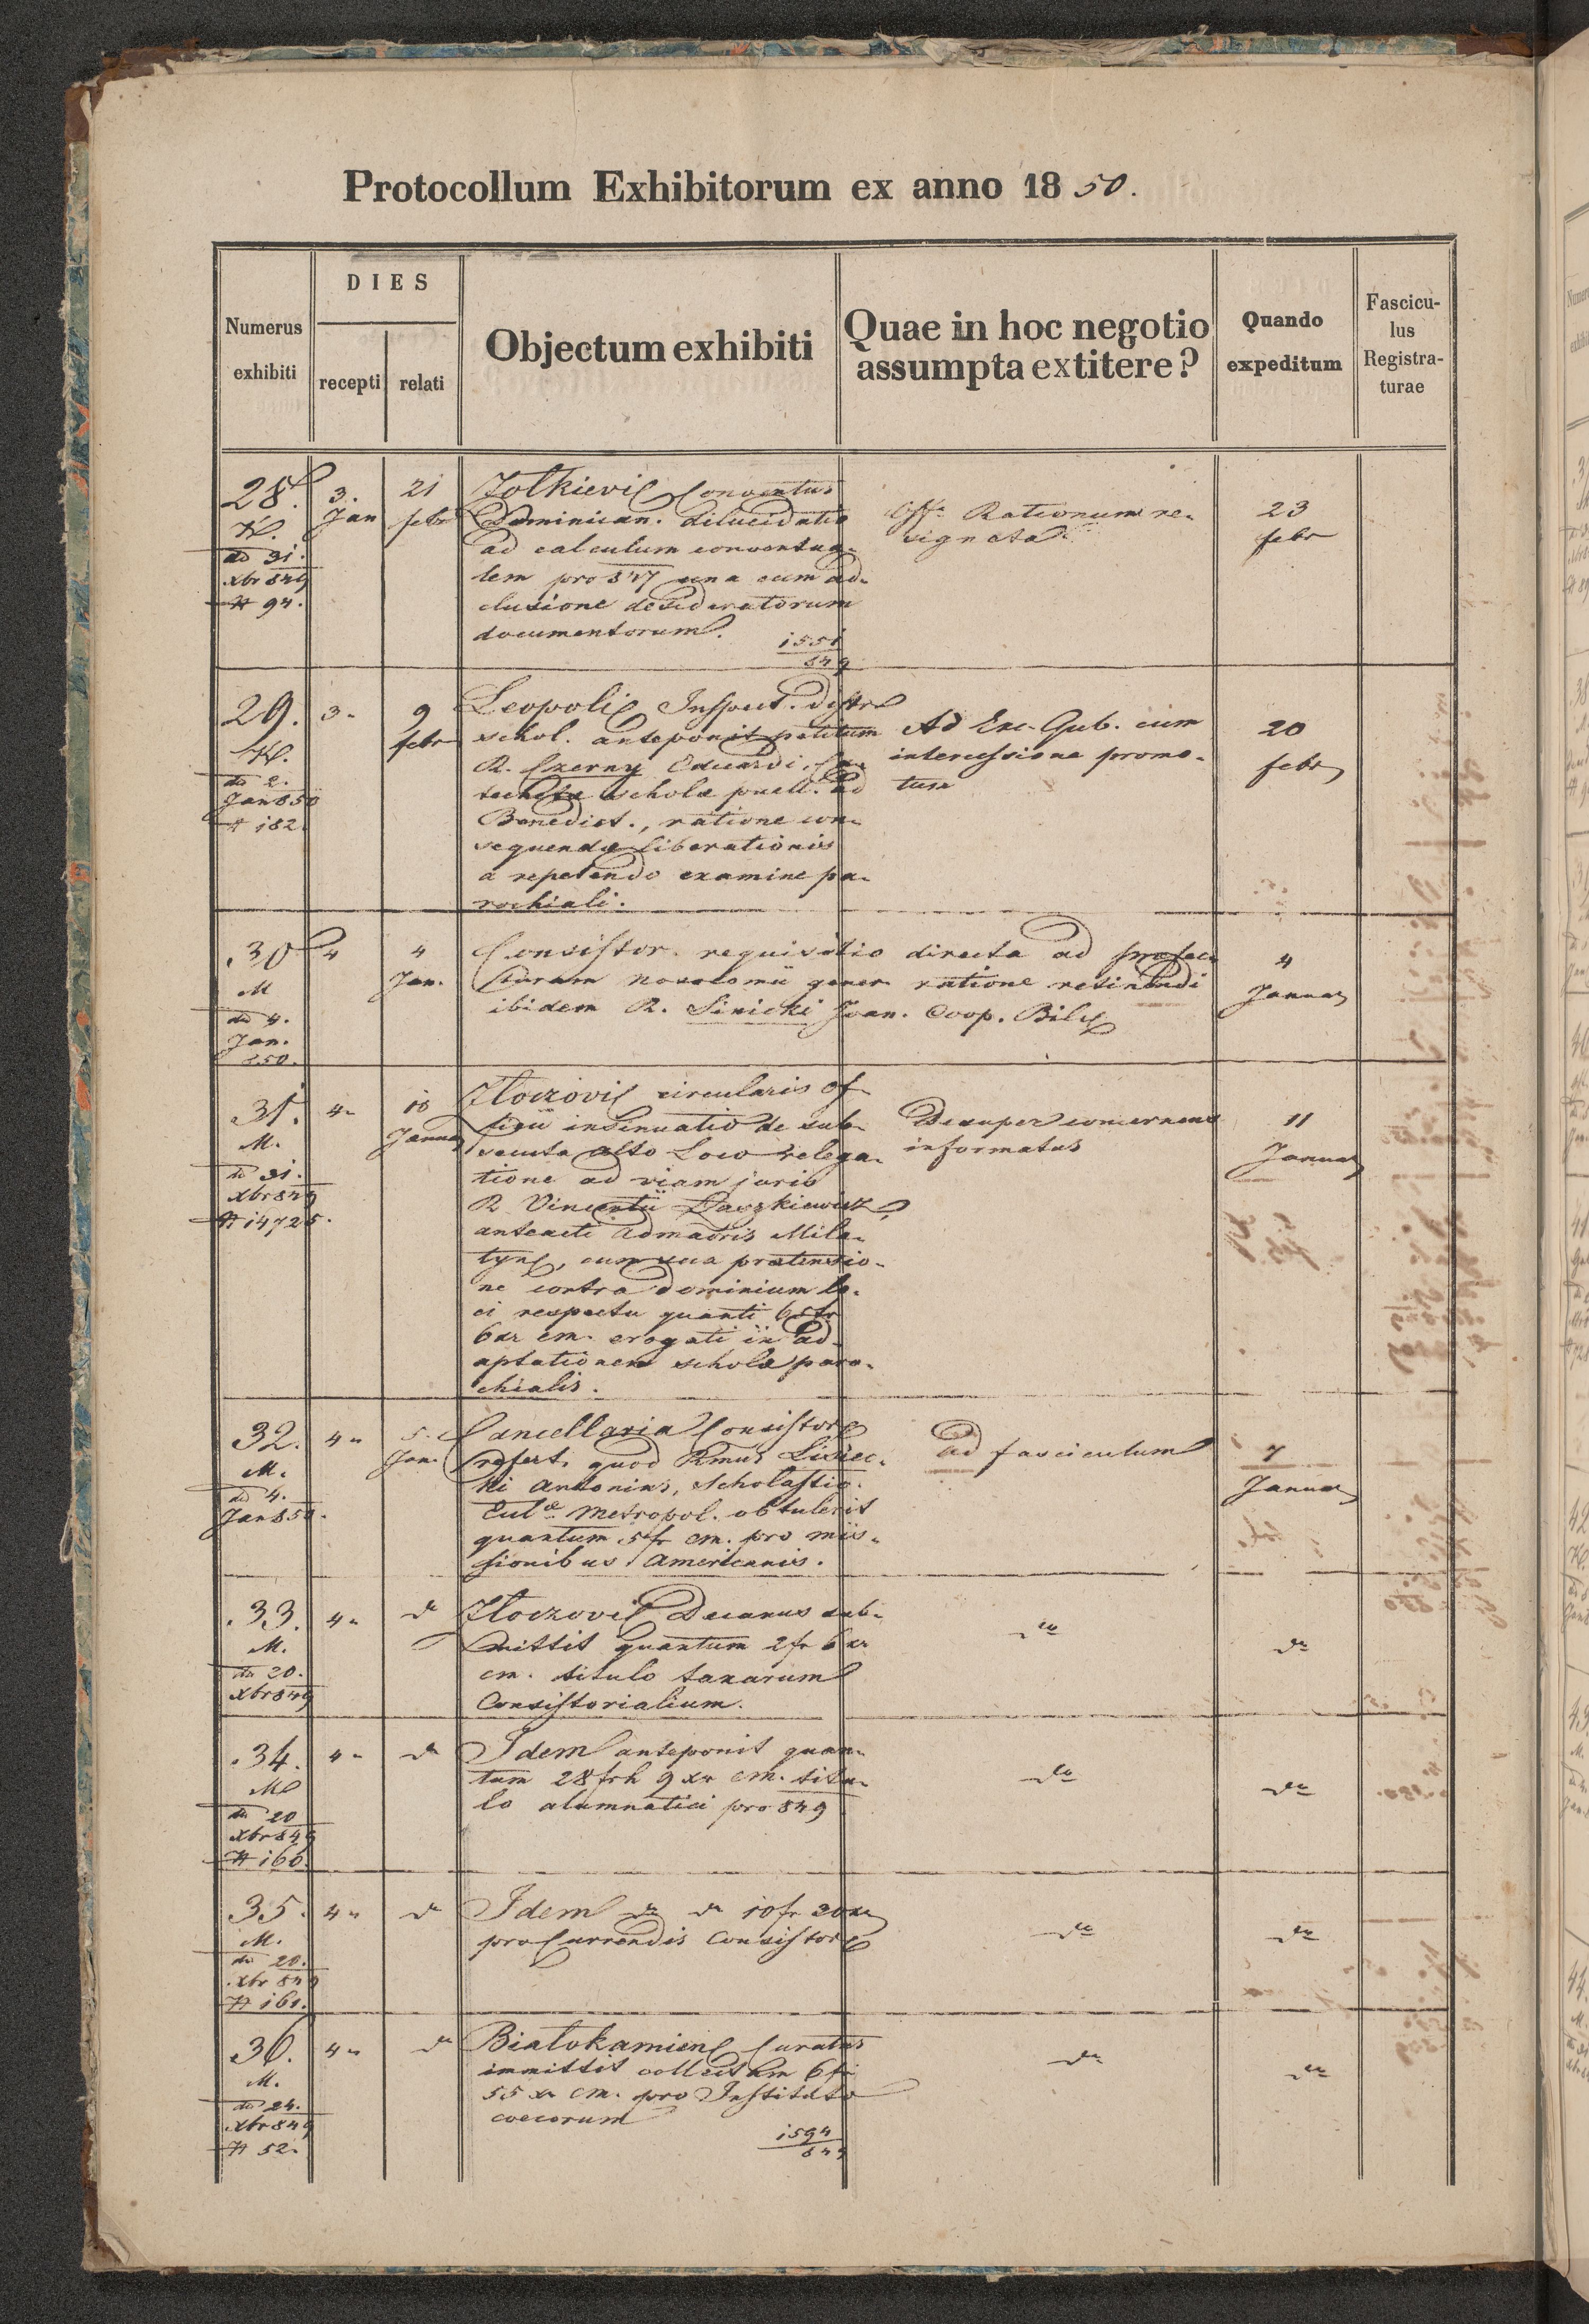 Protocollum Exhibitorum ex anno 18 50.
Numerus exhibiti
DIES
recepti
relati
Objectum exhibiti
Quae in hoc negotio assumpta extitere?
Quando expeditum
Fascicu-
lus
Registra-
turae
28.
dd 31.
xbr 849
# 94.
3.
Jan
21
febr
Conventus
Dominican. dilucidatio
ad calculum conventua-
lem pro 847 una cum ad-
clusione desideratorum
documentorum.
1551
849
Offo Rationum re-
signata.
23
febr
29.
dd 2.
Jan 850
# 182.
3-
9
febr
Leopoli Inspect. distr
schol. anteponit petitum
R. Czerny Eduardi, Ca-
techetæ scholæ puell. ad
Benedict., ratione con-
sequendæ liberationis
a repetendo examine pa-
rochiali.
Ad Exc. Gub. cum
intercessione promo-
tum
20
febr
30
M
dd 4.
Jan.
850.
4
4
Jan.
Consistor. requisitio directa ad præfec-
turam nosocomii gener. ratione retinendi
ibidem R. Sinicki Joan. Coop. Bil
4
Januar
31.
M.
dd 31.
xbr 849
# 14725.
4-
10
Januar
Złoczovi circularis of-
ficii insinuatio de sub-
secuta alto Loco relega-
tione ad viam juris
R. Vincentii
anteacti admadris Mila-
tyn, cum sua prætensio-
ne contra dominium lo-
ci respectu quanti 65 fr
6 xr cm. erogati in ad-
aptationem scholæ paro-
chialis.
Desuper concernens
informatus
11
Januar
32.
M.
dd 4.
Jan 850.
4-
5.
Jan.
Cancellaria Consistor
refert, quod Rmus Lisiec-
ki Antonius, Scholastic.
Metropol. obtulerit
quantum 5 fr cm. pro mis-
sionibus Americanis.
ad fasciculum
7
Januar
33.
M.
dd 20.
xbr 849
4-
do
Złoczovi Decanus sub-
mittit quantum 2 fr 6 xr
cm. titulo taxarum
Consistorialium.
do
do
34.
M
dd 20
xbr 849
# 160.
4-
do
Idem anteponit quan-
tum 28 frh 9 xr cm. titu-
lo alumnatici pro 849
do
do
35.
M.
dd 20.
xbr 849
# 161.
4-
do
Idem do do 10 fr 30 xr
pro Currendis Consistor
do
do
36.
M.
dd 24.
xbr 849
# 52.
4-
do
Białokamien Curatus
immittit collectam 6 fr
55 xr cm. pro Instituto
coecorum
1594
849
do
do